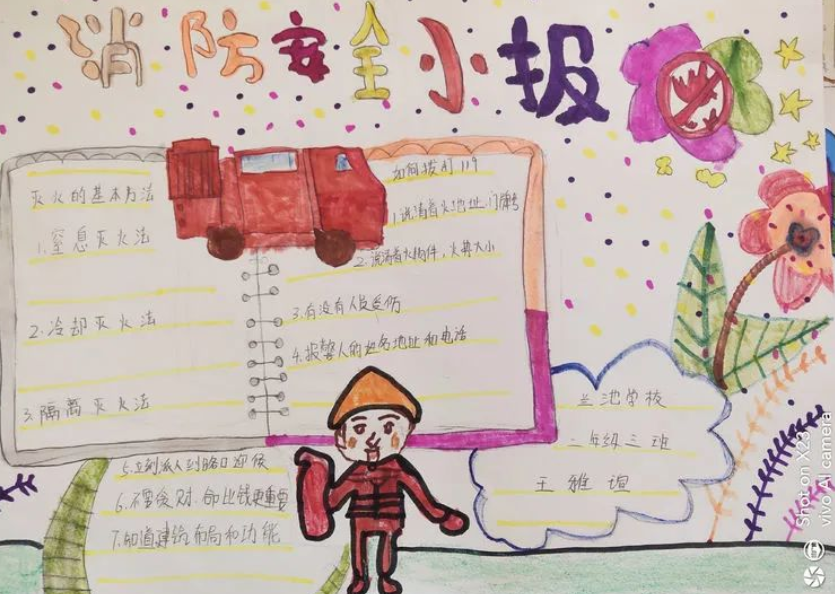 消防安全小报
灭火的基本方法
1.窒息灭火法
2.冷却灭火法
3.隔离灭火法
如何拨打119
1.说清着火地址、门牌号
2.说清着火物件,火势大小
3.有没有人员受伤
4.报警人的姓名地址和电话
5.立刻派人到路口迎候
6.不要贪财.命比钱更重要
7.知道建筑布局和功能
兰池学校
二年级三班
王雅谊
shot on X23
vivo AI camera